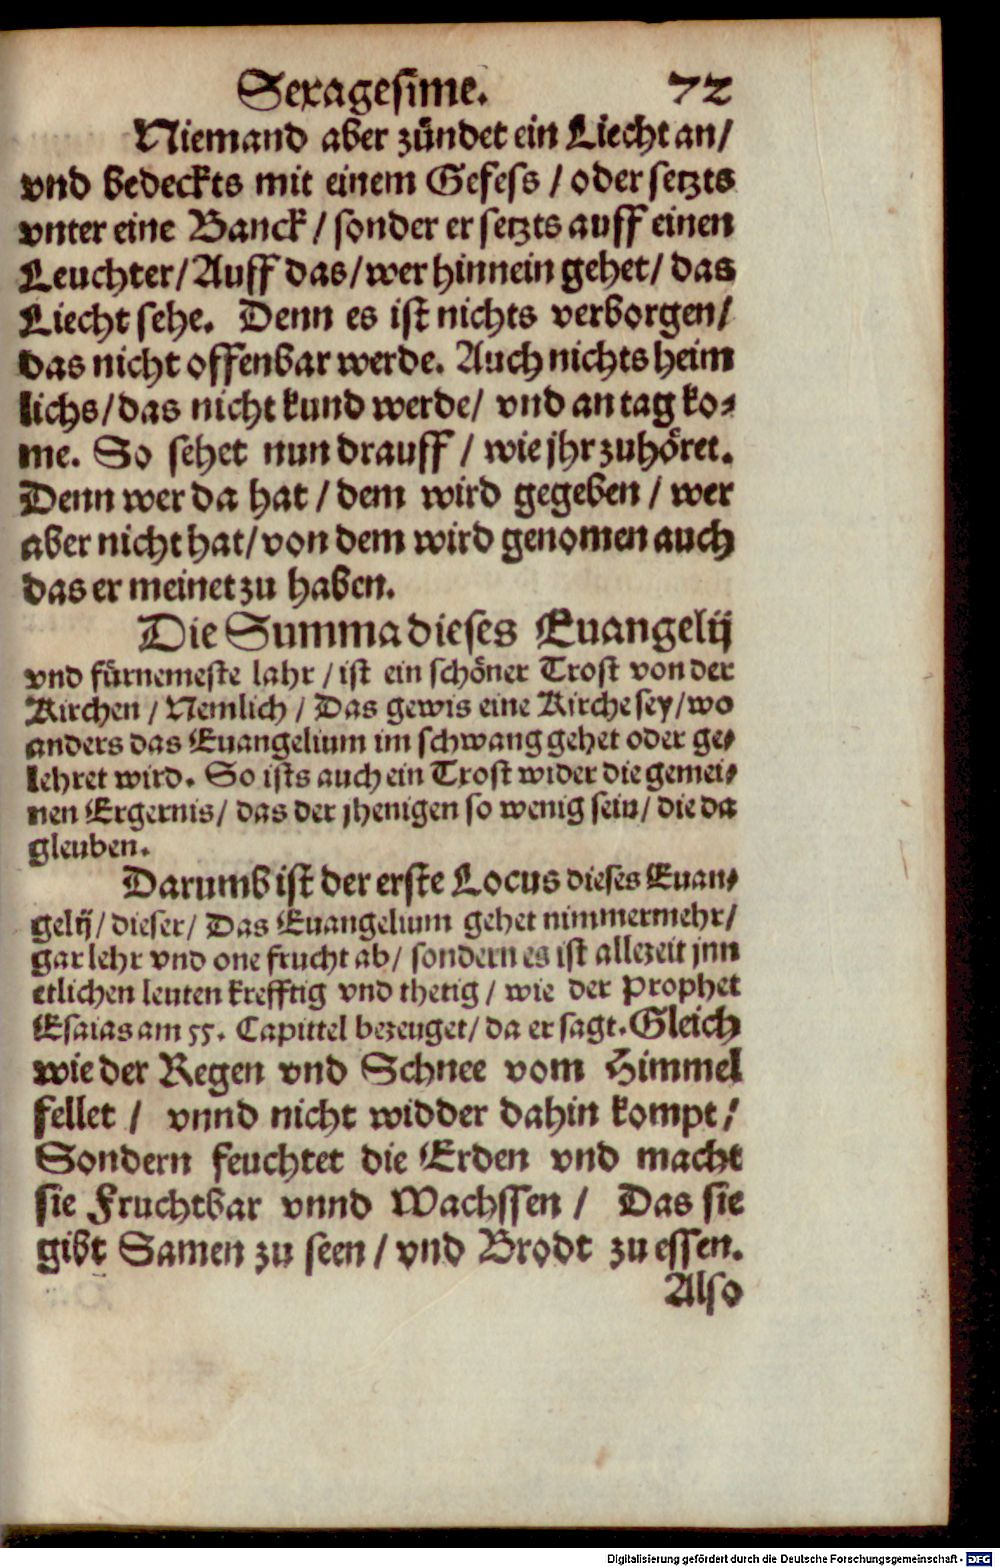 Sexagesime. 72
Niemand aber zündet ein Liecht an/
vnd bedeckts mit einem Gefess / oder setzts
vnter eine Banck / sonder er setzts auff einen
Leuchter/ Auff das/ wer hinnein gehet/ das
Liecht sehe. Denn es ist nichts verborgen/
das nicht offenbar werde. Auch nichts heim
lichs/ das nicht kund werde/ vnd an tag ko⸗
me. So sehet nun drauff / wie jhr zuhöret.
Denn wer da hat / dem wird gegeben / wer
aber nicht hat/ von dem wird genomen auch
das er meinet zu haben.
Die Summa dieses Euangelij
vnd fürnemeste lahr / ist ein schöner Trost von der
Kirchen / Nemlich / Das gewis eine Kirche sey/ wo
anders das Euangelium im schwang gehet oder ge⸗
lehret wird. So ists auch ein Trost wider die gemei⸗
nen Ergernis/ das der jhenigen so wenig sein/ die da
gleuben.
Darumb ist der erste Locus dieses Euan⸗
gelij/ dieser/ Das Euangelium gehet nimmermehr/
gar lehr vnd one frucht ab/ sondern es ist allezeit jnn
etlichen leuten krefftig vnd thetig / wie der Prophet
Esaias am 55. Capittel bezeuget/ da er sagt. Gleich
wie der Regen vnd Schnee vom Himmel
fellet / vnnd nicht widder dahin kompt/
Sondern feuchtet die Erden vnd macht
sie Fruchtbar vnnd Wachssen / Das sie
gibt Samen zu seen / vnd Brodt zu essen.
Also
Digitalisierung gefördert durch die Deutsche Forschungsgemeinschaft - DFG